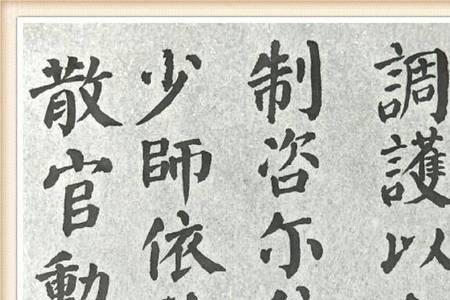 調護以
制咨尔
少師依
散官勳